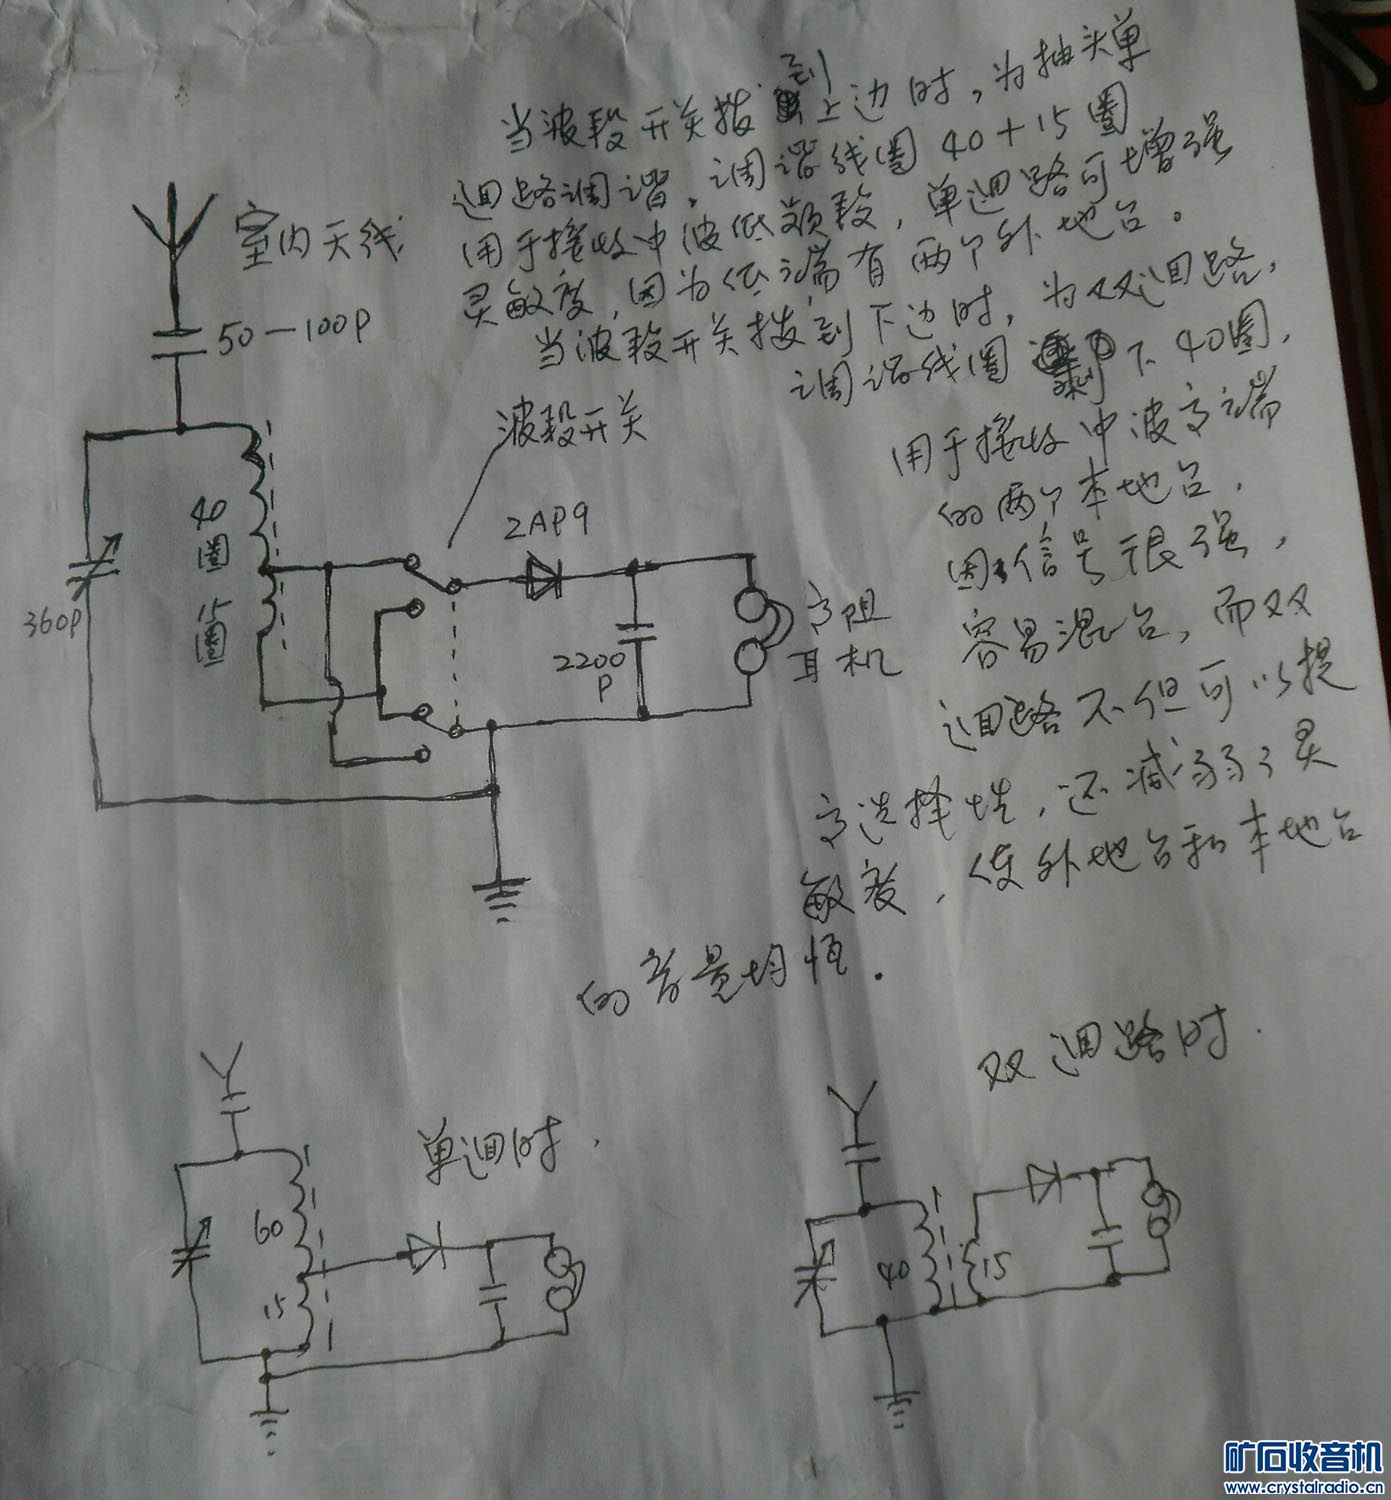 当波段开关拨到上边时，为抽头单
迴路调谐，调谐线圈40+15圈
用于接收中波低频段，单迴路可增强
灵敏度，因为低端有两个外地台。
当波段开关拨到下边时，为双迴路，
调谐线圈剩下40圈，
用于接收中波高端
的两个本地台，
因信号很强，
容易混台，而双
迴路不但可以提
高选择性，还减弱了灵
敏度，使外地台和本地台
的音量均恒。
室内天线
50—100P
波段开关
2AP9
40
圈
15
圈
360P
2200
P
高阻
耳机
双迴路时.
单迴时.
60
15
40
15
矿石收音机
www.crystalradio.cn